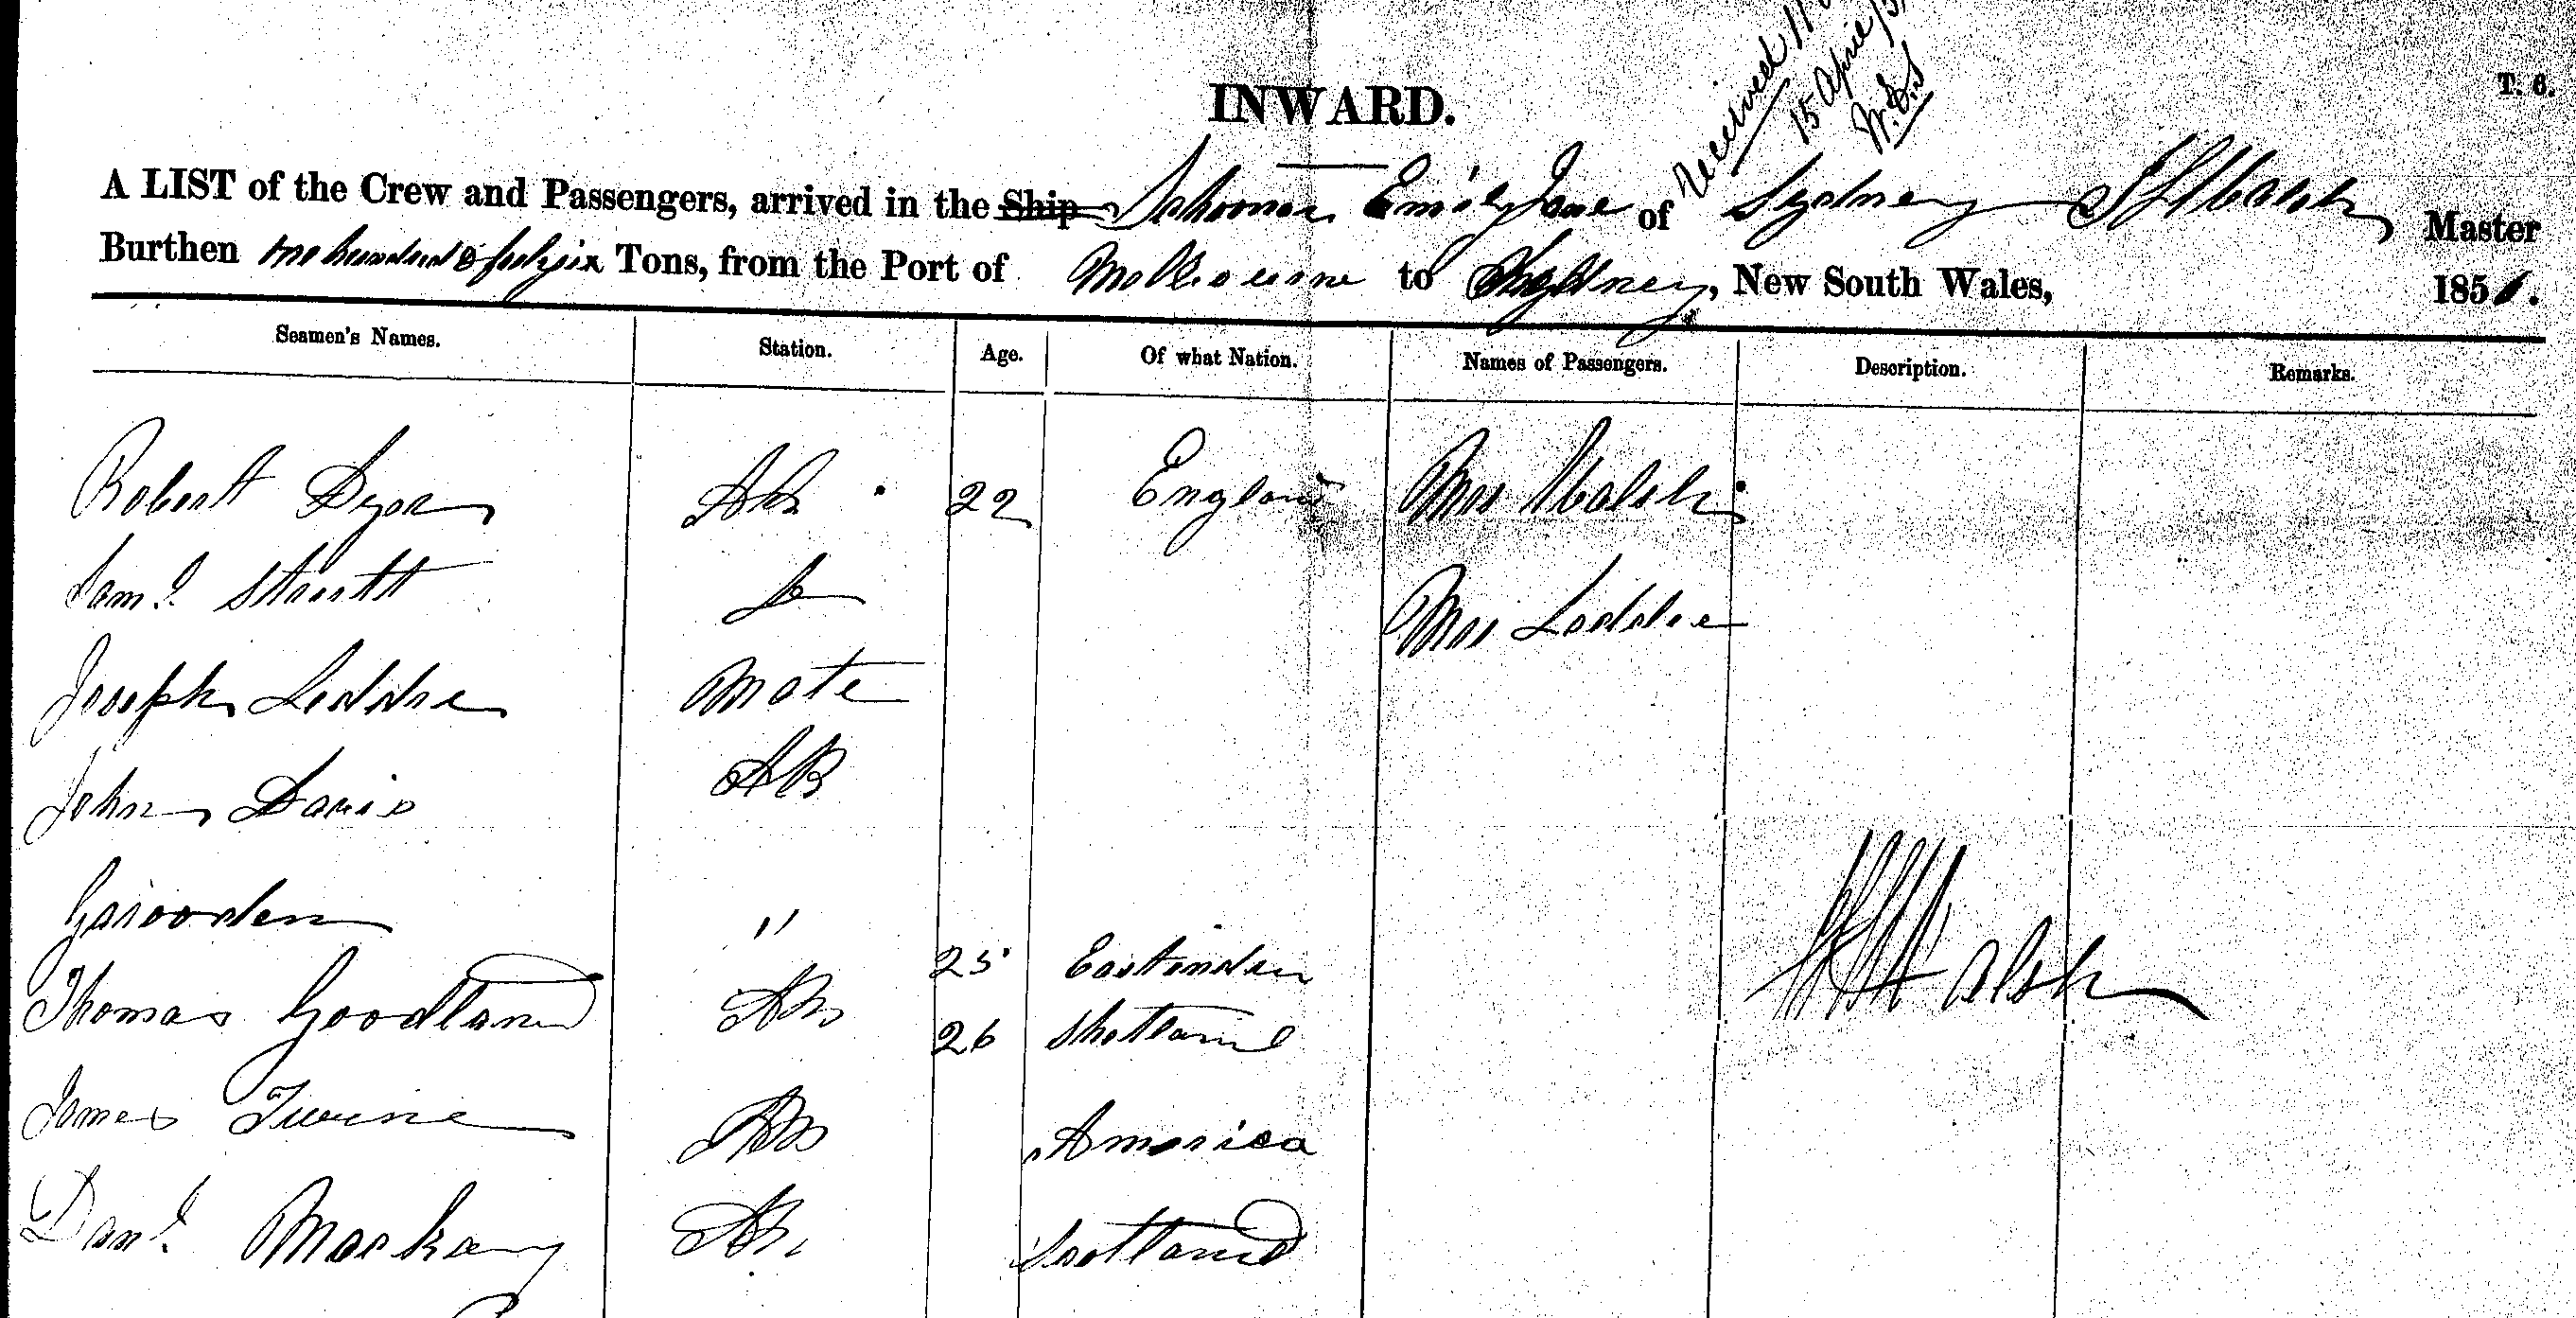 INWARD.
T. 6.
Received 11
15 April
A LIST of the Crew and Passengers, arrived in the Ship Schooner Emily Jane of Sydney Walsh Master
Burthen one hundred & fifty six Tons, from the Port of Melbourne to Sydney, New South Wales, 1856.
Seamen's Names. Station. Age. Of what Nation. Names of Passengers. Description. Remarks.
Robert Dyer AB 22 England Mrs Walsh
Saml. Do Mrs Leddra
Joseph Leddra Mate
John Davis AB
Garooden " 25 Eastinden
Thomas Goodland AB 26 Shetland
Walsh
James AB America
Danl. Mackay AB Scotland